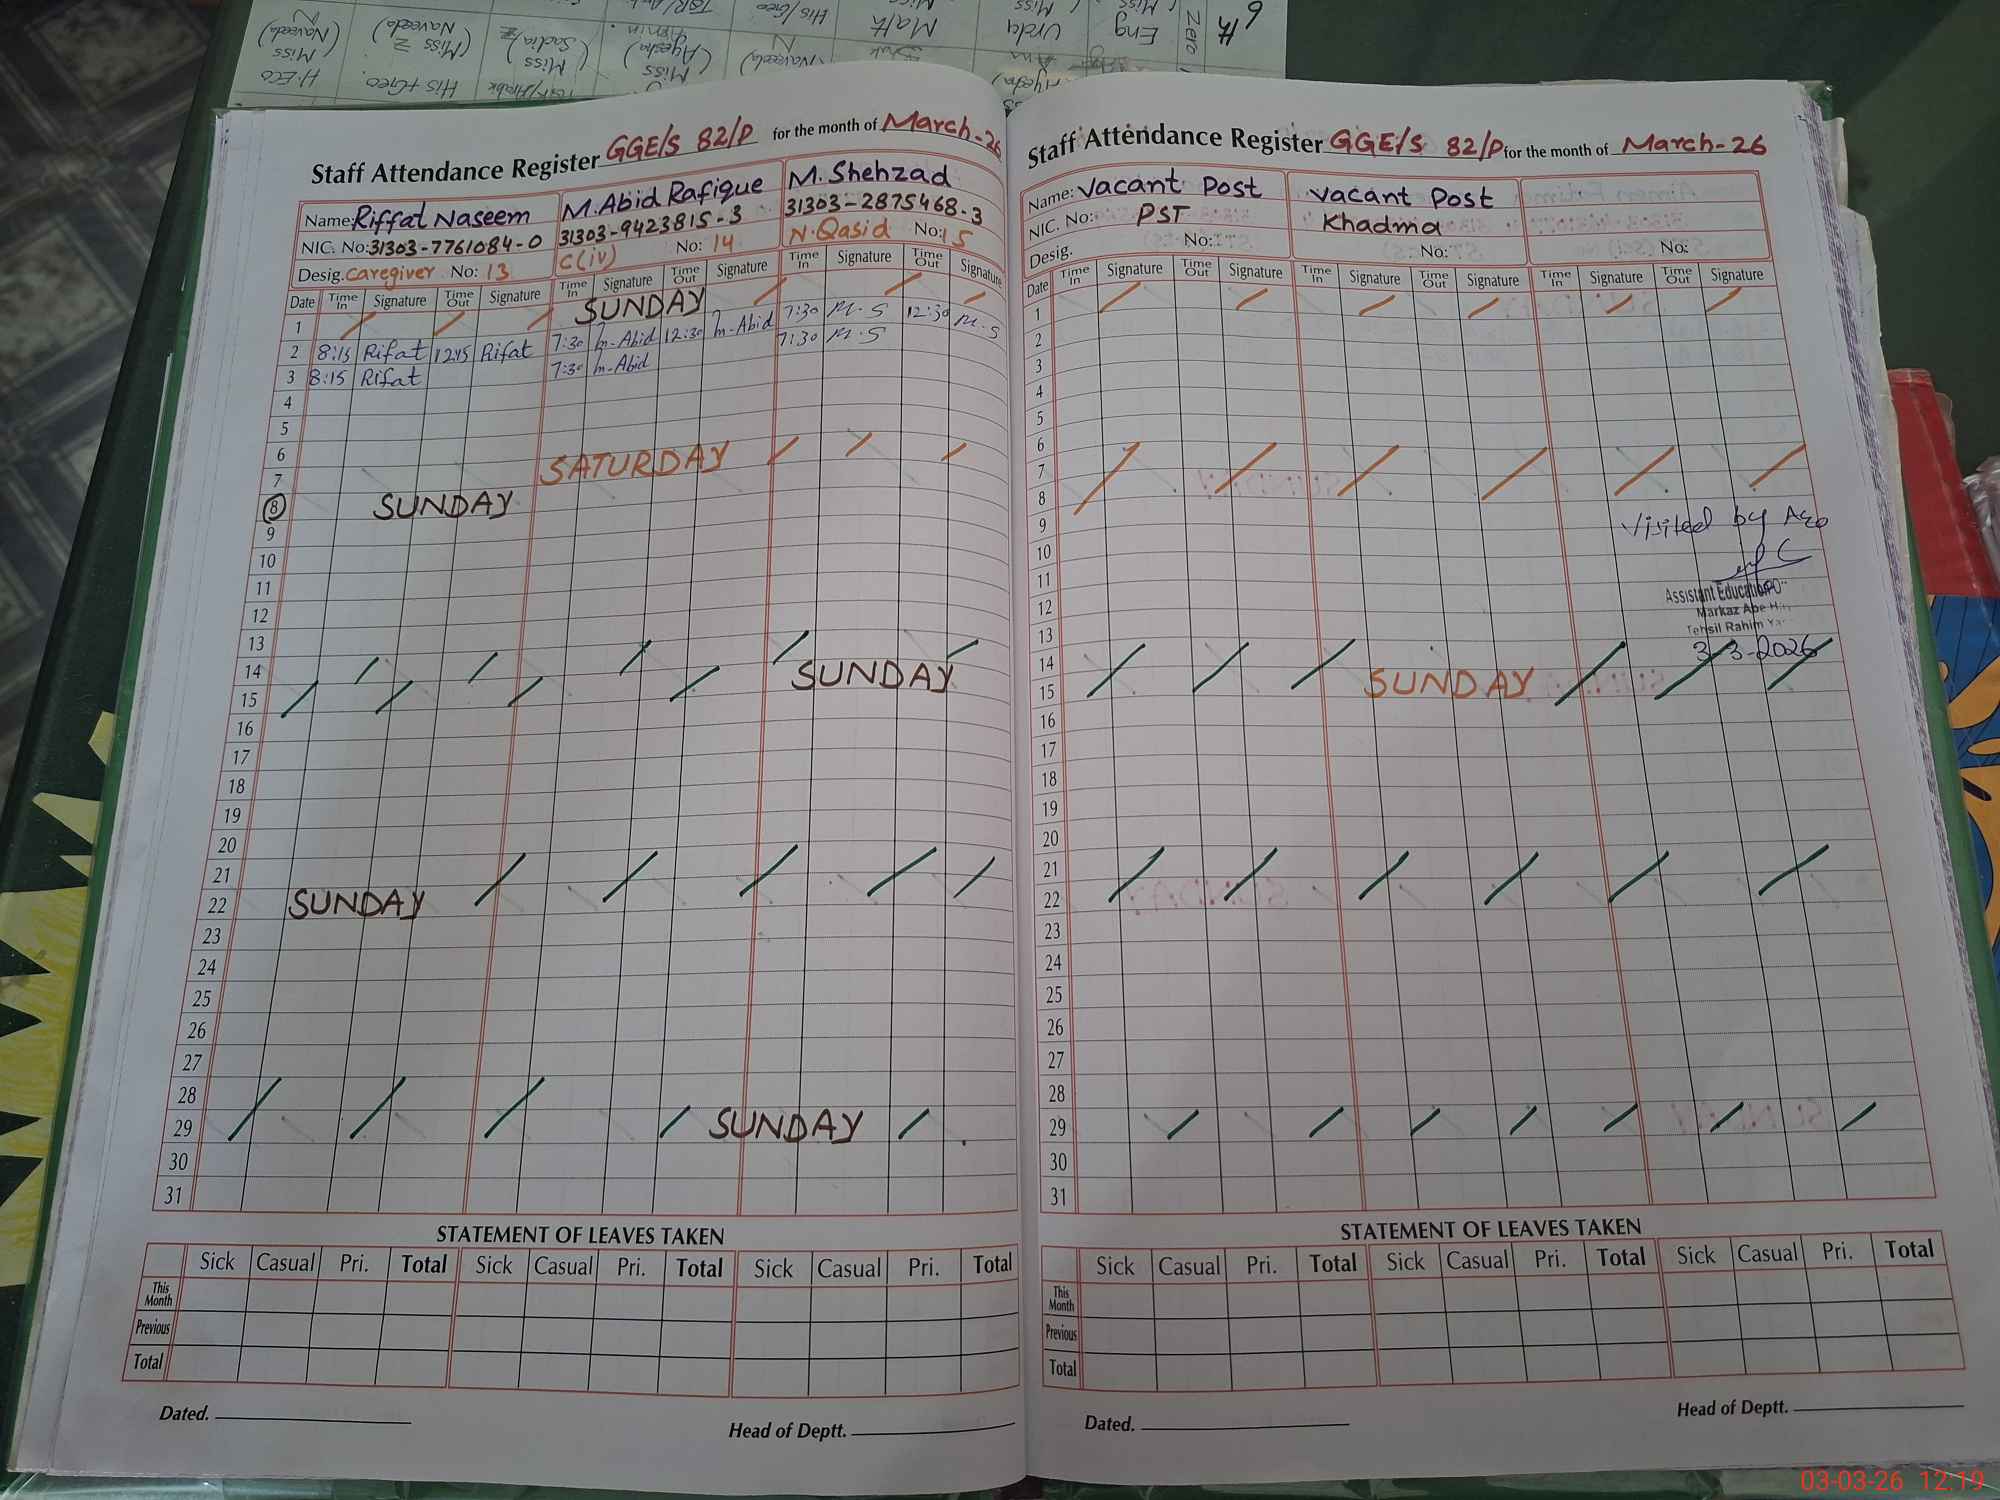 Staff Attendance Register GGE/S 82/P for the month of March-26
Name: Riffat Naseem M. Abid Rafique M. Shehzad
NIC. No: 31303-7761084-0 31303-9423815-3 31303-2875468-3
Desig. caregiver No: 13 C(iv) No: 14 N.Qasid No: 15
Date Time In Signature Time Out Signature Time In Signature Time Out Signature Time In Signature Time Out Signature
1 SUNDAY
2 8:15 Rifat 12:15 Rifat 7:30 m-Abid 12:30 m-Abid 7:30 M.S 12:30 M.S
3 8:15 Rifat 7:30 m-Abid 7:30 M.S
4
5
6
7 SATURDAY
8 SUNDAY
9
10
11
12
13
14
15 SUNDAY
16
17
18
19
20
21
22 SUNDAY
23
24
25
26
27
28
29 SUNDAY
30
31
STATEMENT OF LEAVES TAKEN
Sick Casual Pri. Total Sick Casual Pri. Total Sick Casual Pri. Total
This Month
Previous
Total
Dated. Head of Deptt.
Staff Attendance Register GGE/S 82/P for the month of March-26
Name: Vacant Post Vacant Post
NIC. No: PST Khadma
Desig. No: No: No:
Date Time In Signature Time Out Signature Time In Signature Time Out Signature Time In Signature Time Out Signature
1
2
3
4
5
6
7
8
9 Visited by Aeo
10
11
12 Assistant Education
Markaz
13 Tehsil Rahim
14 3-3-2026
15 SUNDAY
16
17
18
19
20
21
22
23
24
25
26
27
28
29
30
31
STATEMENT OF LEAVES TAKEN
Sick Casual Pri. Total Sick Casual Pri. Total Sick Casual Pri. Total
This Month
Previous
Total
Dated. Head of Deptt.
03-03-26 12:19